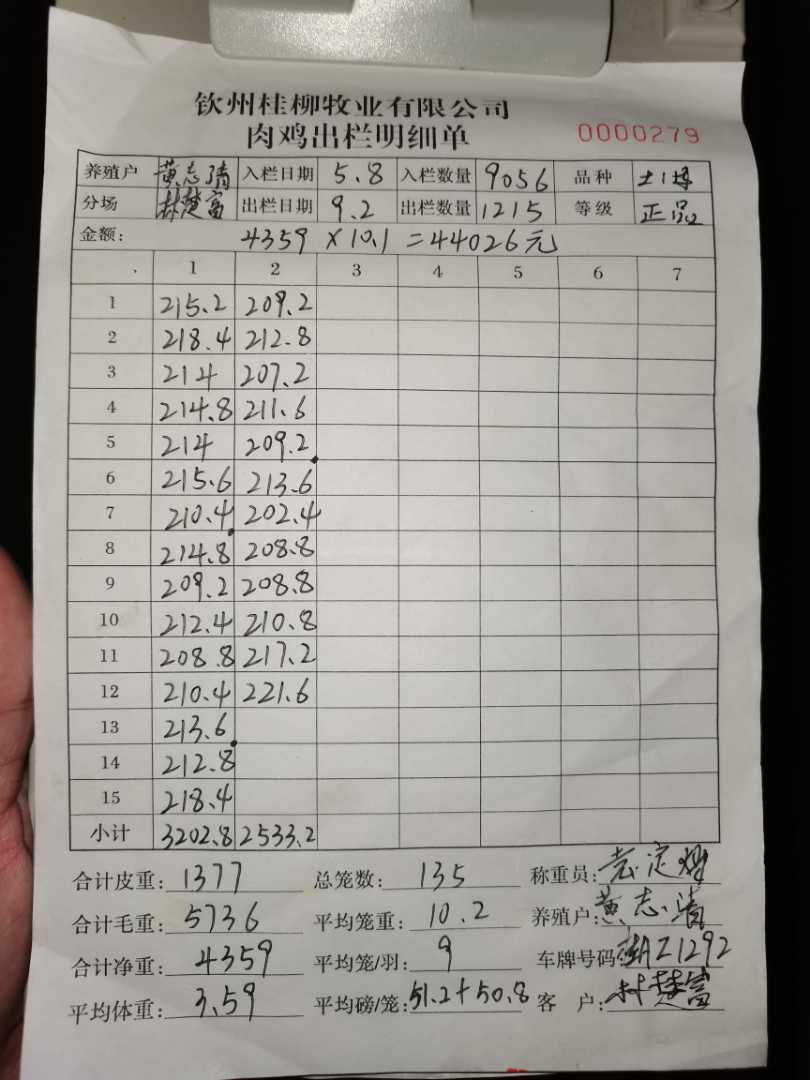 钦州桂柳牧业有限公司
肉鸡出栏明细单 0000279
养殖户 黄志清 入栏日期 5.8 入栏数量 9056 品种 土1
分场 林楚富 出栏日期 9.2 出栏数量 1215 等级 正品
金额: 4359 X 10.1 = 44026元
1 2 3 4 5 6 7
1 215.2 209.2
2 218.4 212.8
3 214 207.2
4 214.8 211.6
5 214 209.2
6 215.6 213.6
7 210.4 202.4
8 214.8 208.8
9 209.2 208.8
10 212.4 210.8
11 208.8 217.2
12 210.4 221.6
13 213.6
14 212.8
15 218.4
小计 3202.8 2533.2
合计皮重: 1377 总笼数: 135 称重员:
合计毛重: 5736 平均笼重: 10.2 养殖户: 黄志清
合计净重: 4359 平均笼/羽: 9 车牌号码: Z1292
平均体重: 3.59 平均磅/笼: 51.2+50.8 客 户: 林楚富